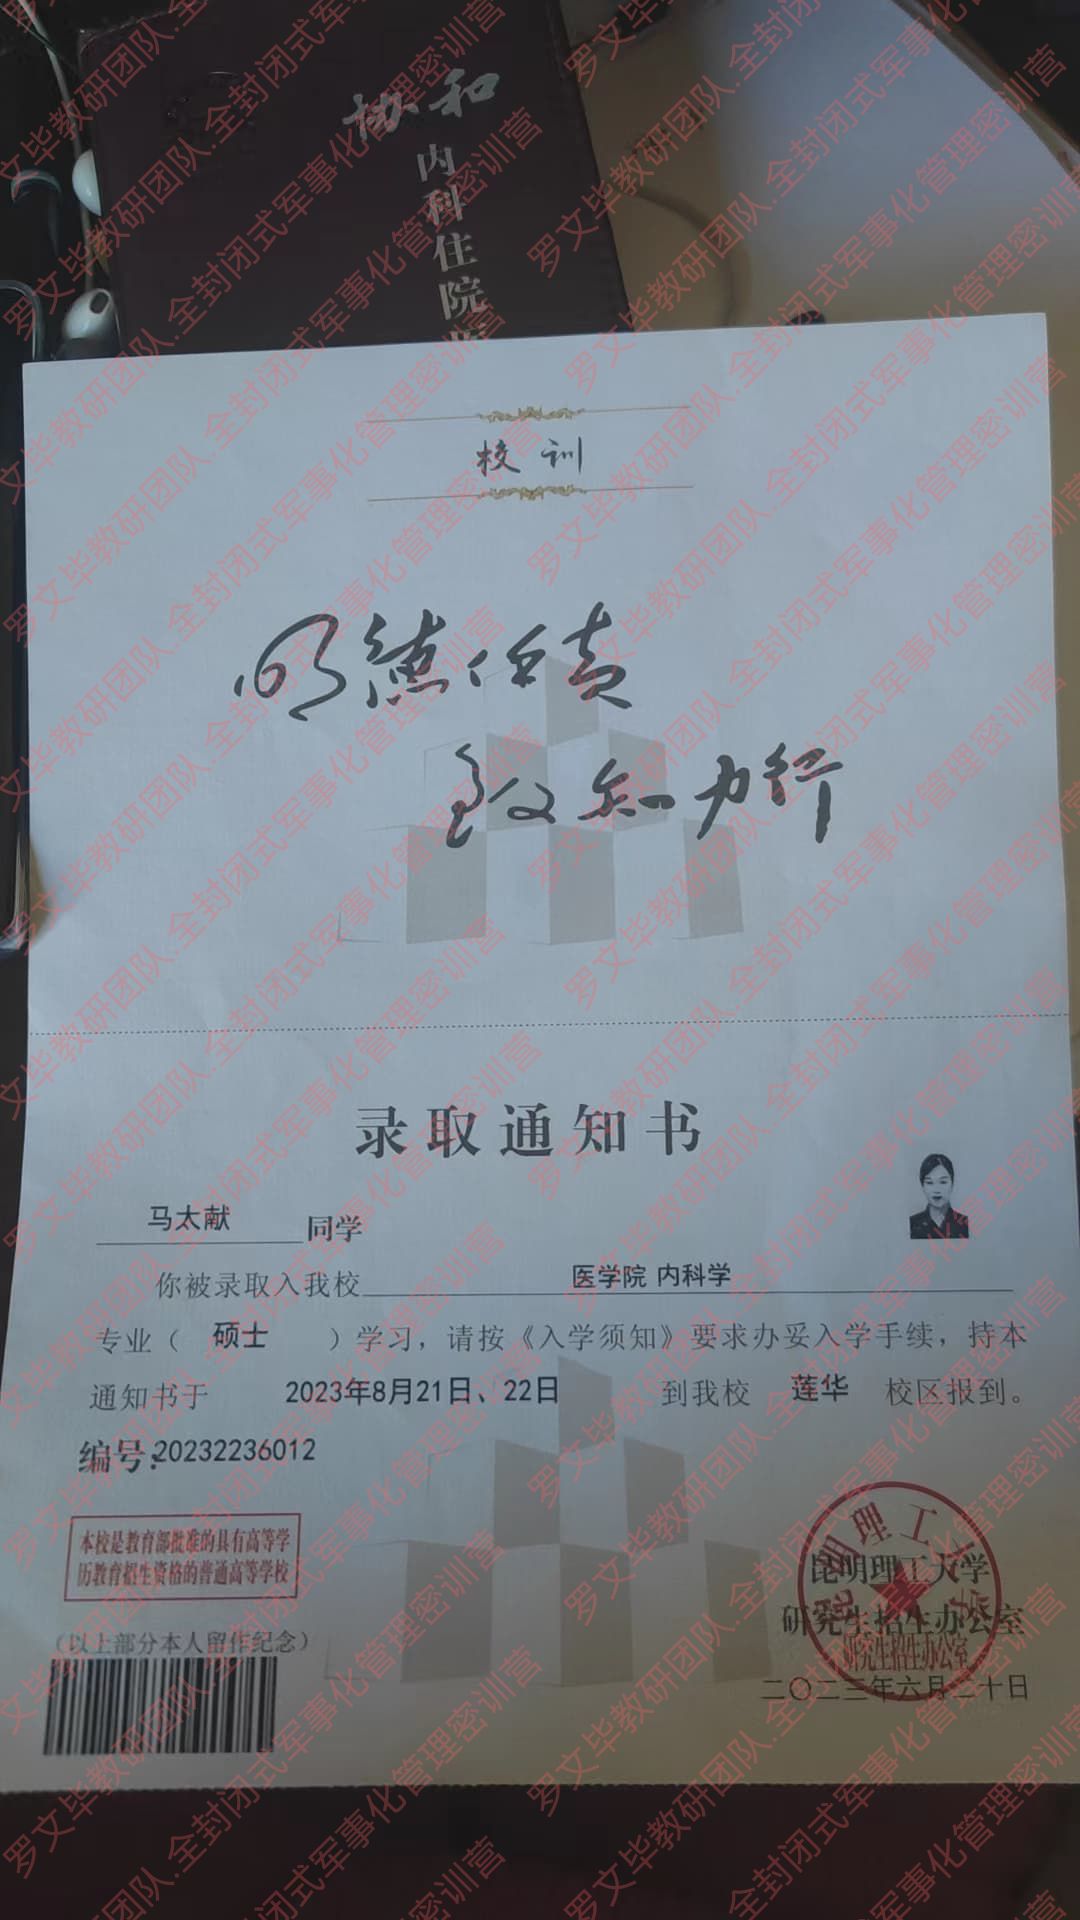 协和
内科住院
校训
明德任责
致知力行
录取通知书
马太献 同学
你被录取入我校 医学院 内科学
专业（ 硕士 ）学习，请按《入学须知》要求办妥入学手续，持本
通知书于 2023年8月21日、22日 到我校 莲华 校区报到。
编号:20232236012
本校是教育部批准的具有高等学
历教育招生资格的普通高等学校
昆明理工大学
昆明理工大学
研究生招生办公室
研究生招生办公室
（以上部分本人留作纪念）
二〇二三年六月二十日
罗文毕教研团队.全封闭式军事化管理密训营